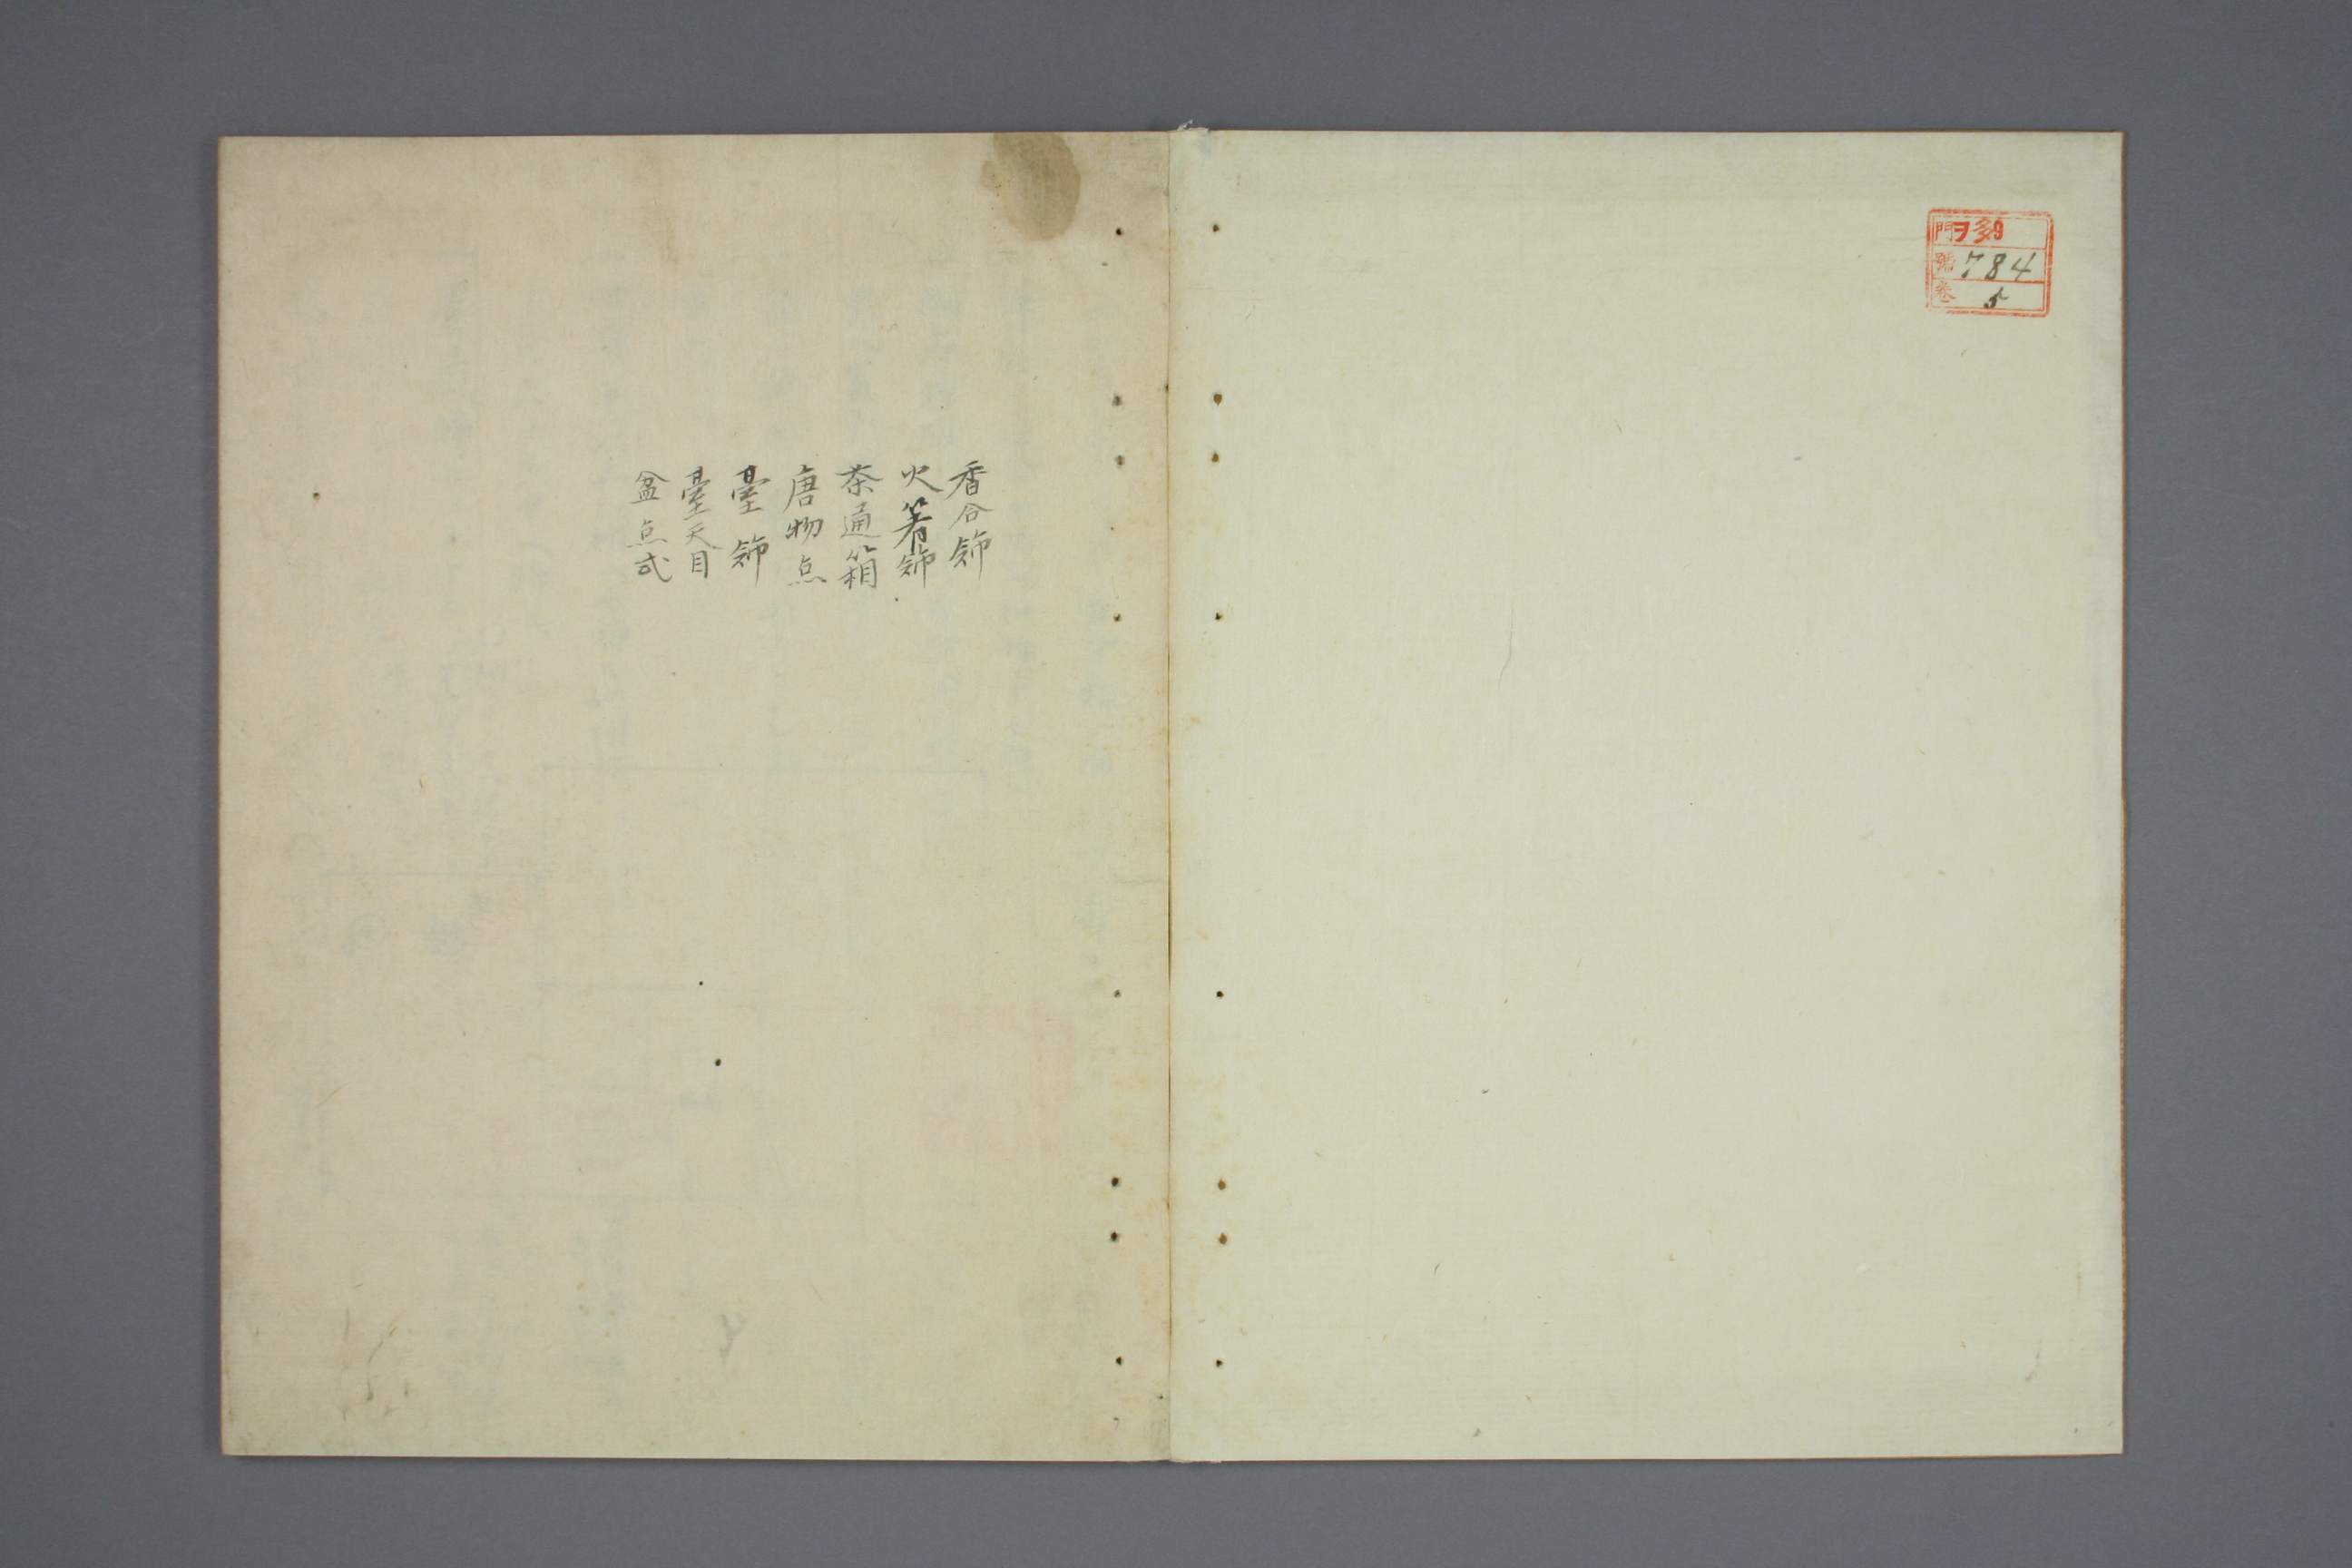 門 ヲ 9
號 784
卷 5
香合飾
火箸飾
茶通箱
唐物点
臺飾
臺天目
盆点式